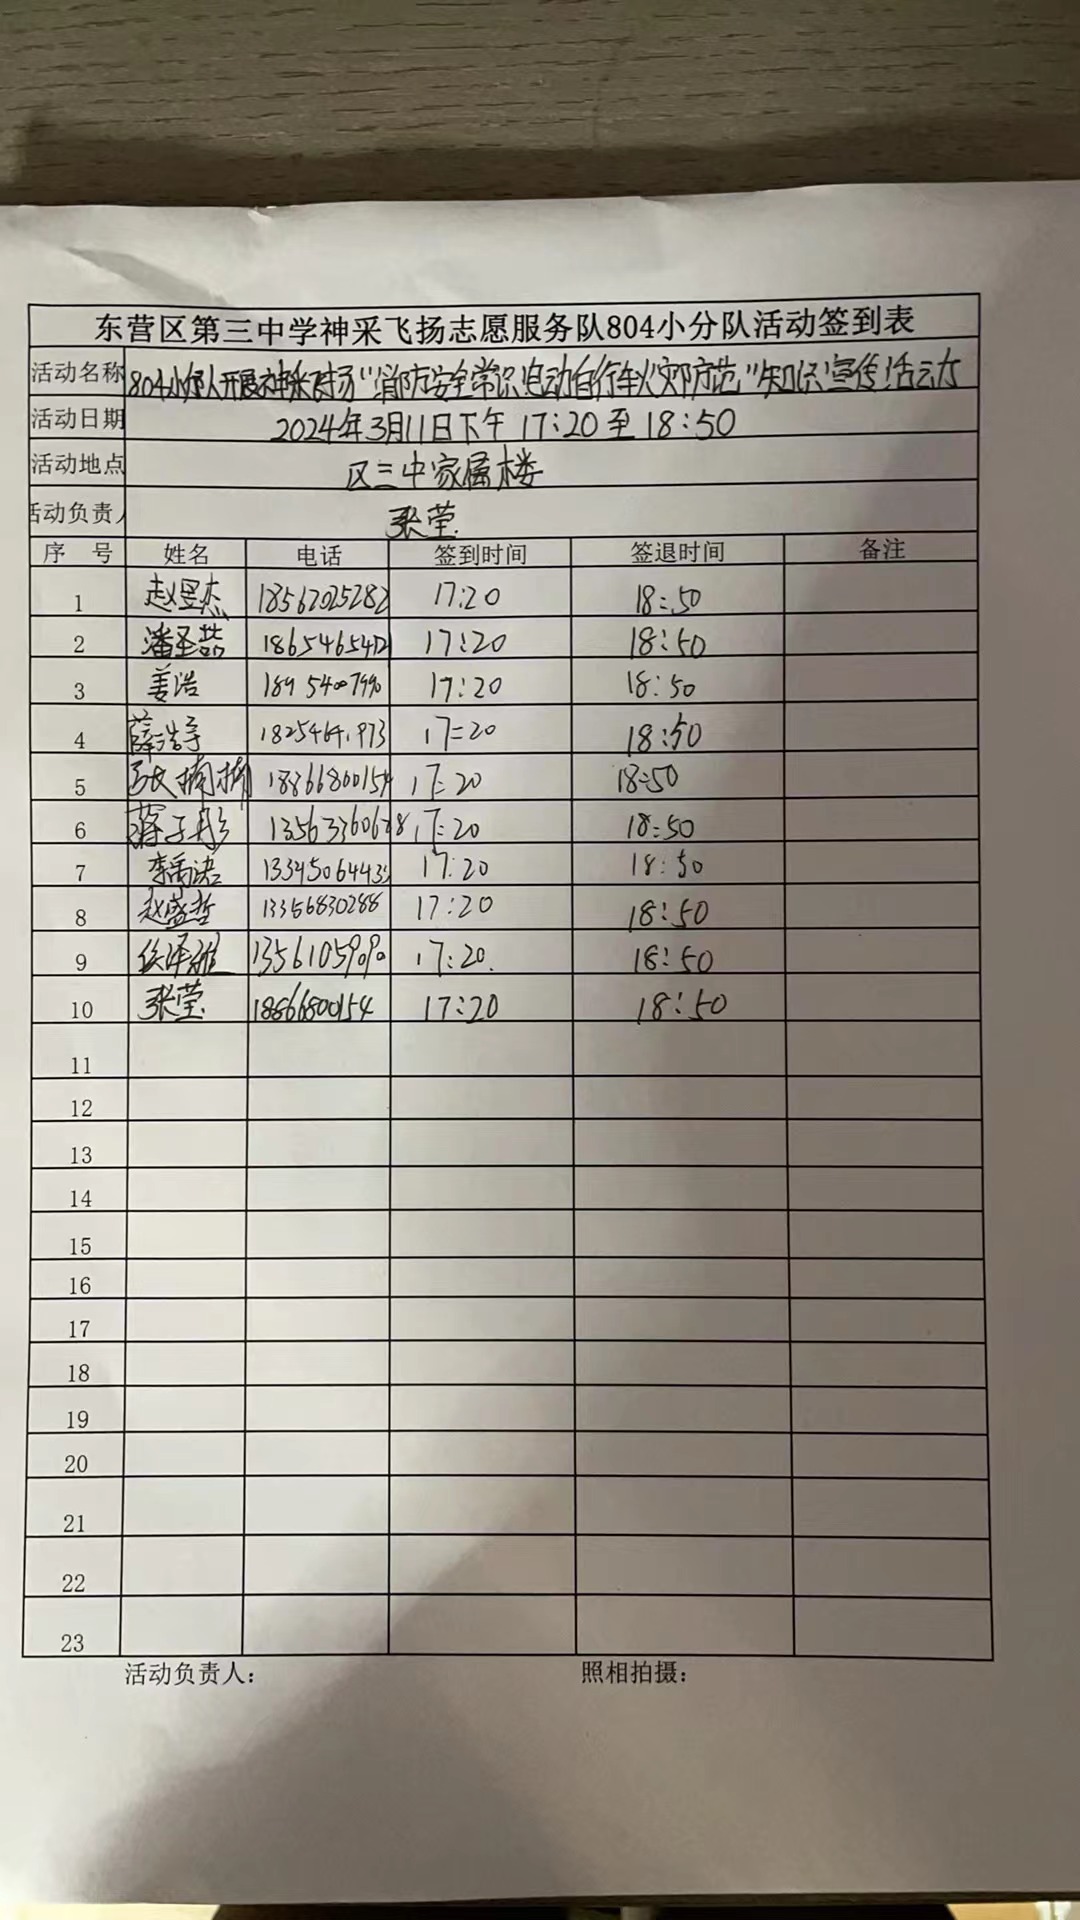 东营区第三中学神采飞扬志愿服务队804小分队活动签到表
活动名称 804小分队开展神采飞扬"消防安全常识电动自行车火灾防范"知识宣传活动
活动日期 2024年3月11日下午 17:20 至 18:50
活动地点 区三中家属楼
活动负责人 张莹
序 号 姓名 电话 签到时间 签退时间 备注
1 赵昱杰 18562025282 17:20 18:50
2 潘圣喆 17:20 18:50
3 姜浩 17:20 18:50
4 薛浩宇 17:20 18:50
5 张楠楠 18866800154 17:20 18:50
6 蒋子彤 17:20 18:50
7 李禹诺 17:20 18:50
8 赵盛哲 13356830288 17:20 18:50
9 17:20 18:50
10 张莹 18866800154 17:20 18:50
11
12
13
14
15
16
17
18
19
20
21
22
23
活动负责人: 照相拍摄: